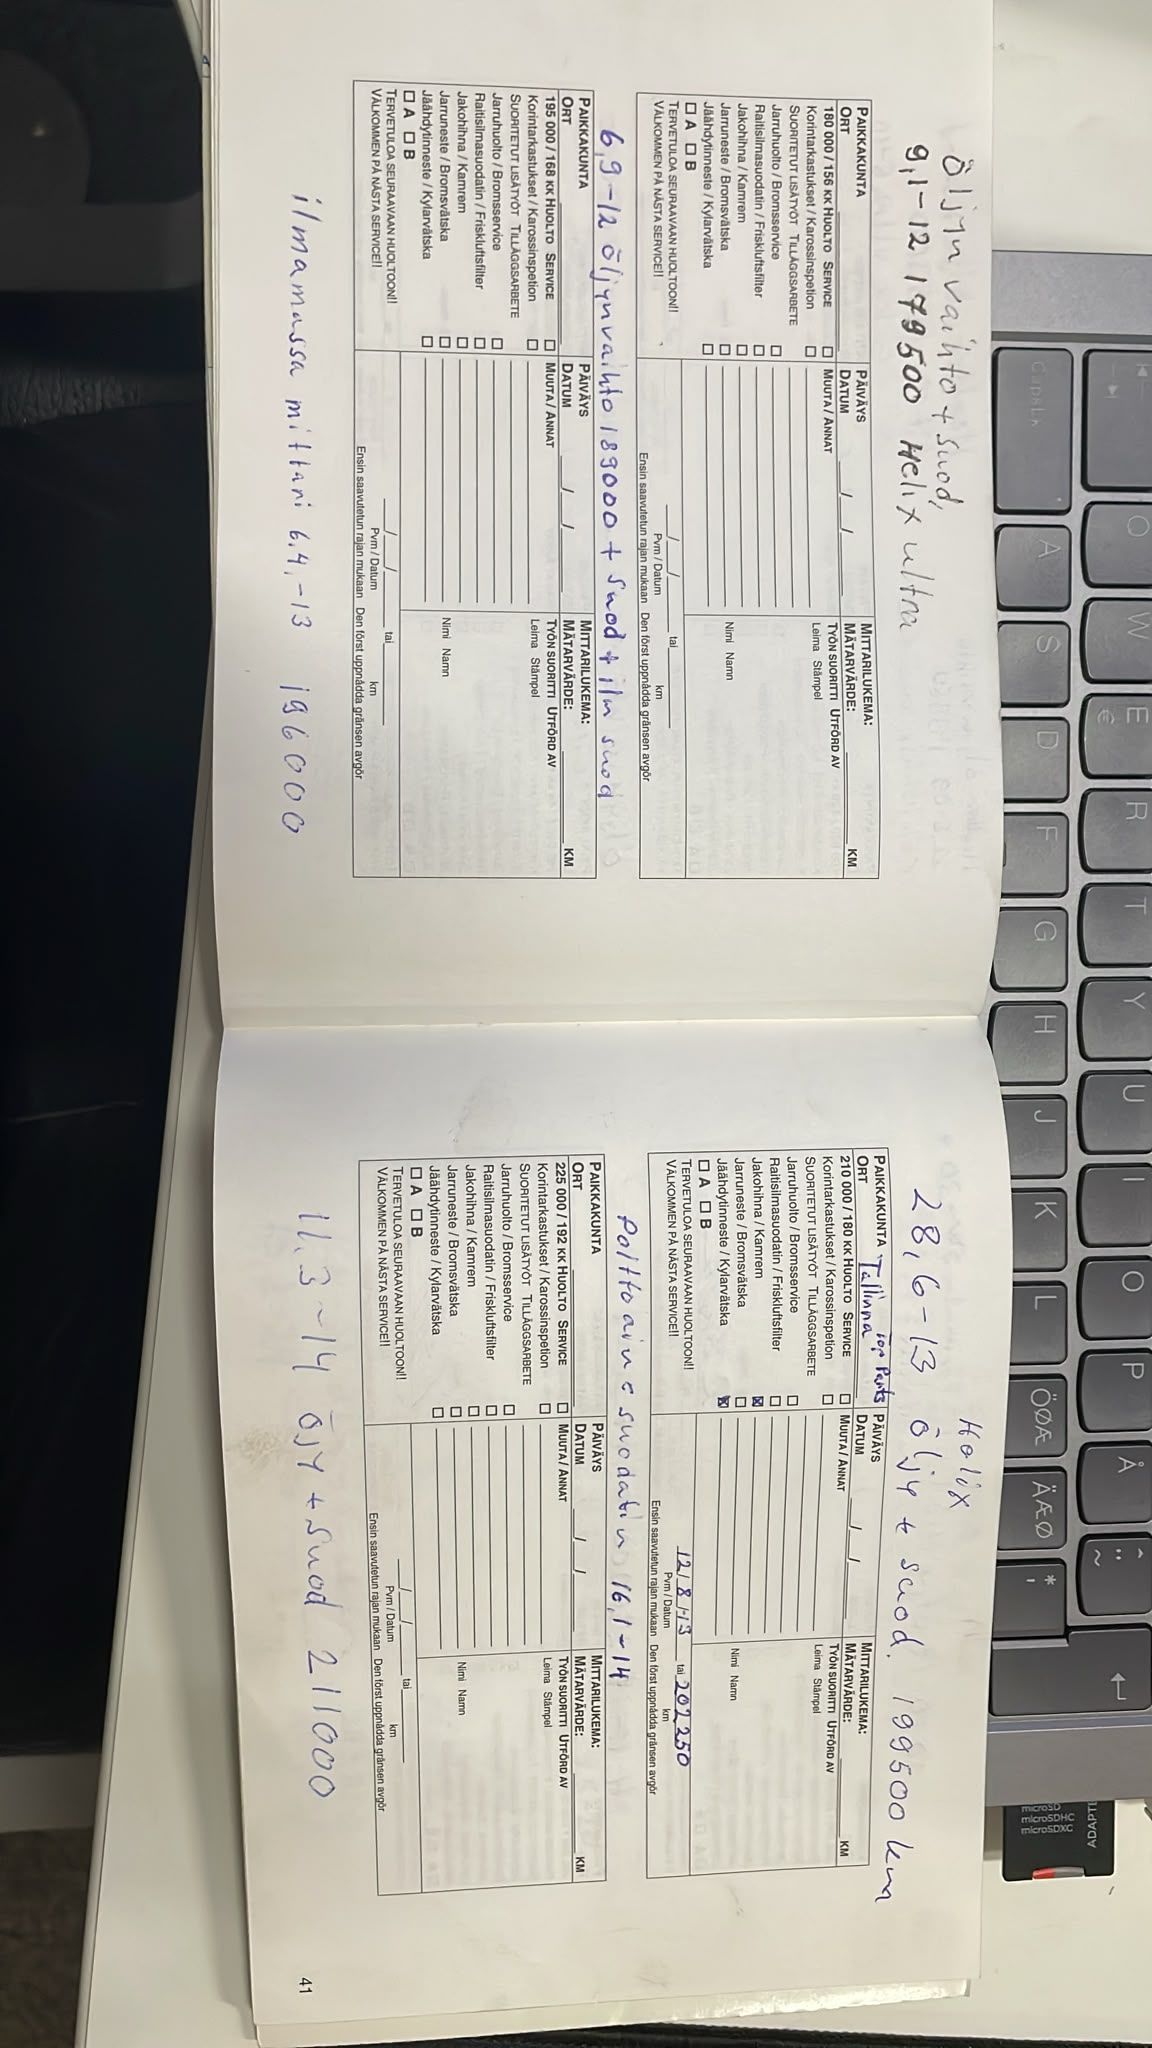 Öljyn vaihto + suod,
9,1-12 179500 Helix ultra
PAIKKAKUNTA
ORT
PÄIVÄYS
DATUM / /
MITTARILUKEMA:
MÄTARVÄRDE: KM
180 000 / 156 KK HUOLTO SERVICE
MUUTA / ANNAT
TYÖN SUORITTI UTFÖRD AV
Korintarkastukset / Karossinspetion
Leima Stämpel
SUORITETUT LISÄTYÖT TILLÄGGSARBETE
Jarruhuolto / Bromsservice
Raitisilmasuodatin / Friskluftsfilter
Jakohihna / Kamrem
Jarruneste / Bromsvätska
Nimi Namn
Jäähdytinneste / Kylarvätska
☐ A ☐ B
TERVETULOA SEURAAVAAN HUOLTOON!!
VÄLKOMMEN PÅ NÄSTA SERVICE!!
/ / tai
Pvm / Datum km
Ensin saavutetun rajan mukaan Den först uppnådda gränsen avgör
6,9-12 öljynvaihto 189000 + suod + ilm suod
PAIKKAKUNTA
ORT
PÄIVÄYS
DATUM / /
MITTARILUKEMA:
MÄTARVÄRDE: KM
195 000 / 168 KK HUOLTO SERVICE
MUUTA / ANNAT
TYÖN SUORITTI UTFÖRD AV
Korintarkastukset / Karossinspetion
Leima Stämpel
SUORITETUT LISÄTYÖT TILLÄGGSARBETE
Jarruhuolto / Bromsservice
Raitisilmasuodatin / Friskluftsfilter
Jakohihna / Kamrem
Jarruneste / Bromsvätska
Nimi Namn
Jäähdytinneste / Kylarvätska
☐ A ☐ B
TERVETULOA SEURAAVAAN HUOLTOON!!
VÄLKOMMEN PÅ NÄSTA SERVICE!!
/ / tai
Pvm / Datum km
Ensin saavutetun rajan mukaan Den först uppnådda gränsen avgör
ilmamassa mittari 6.4,-13 196000
Helix
28,6-13 öljy + suod. 199500 km
PAIKKAKUNTA Tallinna Top Parts
ORT
PÄIVÄYS
DATUM / /
MITTARILUKEMA:
MÄTARVÄRDE: KM
210 000 / 180 KK HUOLTO SERVICE
MUUTA / ANNAT
TYÖN SUORITTI UTFÖRD AV
Korintarkastukset / Karossinspetion
Leima Stämpel
SUORITETUT LISÄTYÖT TILLÄGGSARBETE
Jarruhuolto / Bromsservice
Raitisilmasuodatin / Friskluftsfilter
Jakohihna / Kamrem ☒
Jarruneste / Bromsvätska
Nimi Namn
Jäähdytinneste / Kylarvätska ☒
☐ A ☐ B
TERVETULOA SEURAAVAAN HUOLTOON!!
VÄLKOMMEN PÅ NÄSTA SERVICE!!
12/8/-13 tai 202250
Pvm / Datum km
Ensin saavutetun rajan mukaan Den först uppnådda gränsen avgör
Polttoaine suodatin 16,1-14
PAIKKAKUNTA
ORT
PÄIVÄYS
DATUM / /
MITTARILUKEMA:
MÄTARVÄRDE: KM
225 000 / 192 KK HUOLTO SERVICE
MUUTA / ANNAT
TYÖN SUORITTI UTFÖRD AV
Korintarkastukset / Karossinspetion
Leima Stämpel
SUORITETUT LISÄTYÖT TILLÄGGSARBETE
Jarruhuolto / Bromsservice
Raitisilmasuodatin / Friskluftsfilter
Jakohihna / Kamrem
Jarruneste / Bromsvätska
Nimi Namn
Jäähdytinneste / Kylarvätska
☐ A ☐ B
TERVETULOA SEURAAVAAN HUOLTOON!!
VÄLKOMMEN PÅ NÄSTA SERVICE!!
/ / tai
Pvm / Datum km
Ensin saavutetun rajan mukaan Den först uppnådda gränsen avgör
11.3-14 öjy + suod 211000
41
Caps Lk
Q W E R T Y U I O P Å
€
A S D F G H J K L ÖØÆ ÄÆØ
microSD
microSDHC
microSDXC